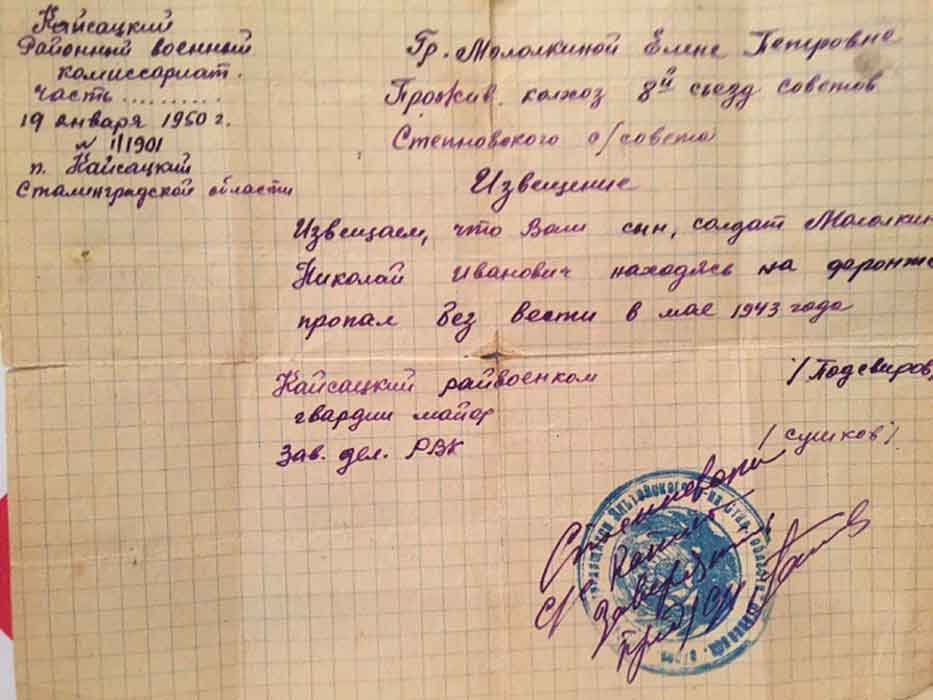 Кайсацкий
Районный военный
комиссариат.
часть ..........
19 января 1950 г.
№ 1/1901
п. Кайсацкий
Сталинградской области
Гр. Мололкиной Елене Петровне
Прожив. колхоз 8й съезд советов
Степновского с/совета
Извещение
Извещаем, что Ваш сын, солдат Мололкин
Николай Иванович находясь на фронте
пропал без вести в мае 1943 года
Кайсацкий райвоенком
гвардии майор
/Подсвиров/
Зав. дел. РВК
/сушков/